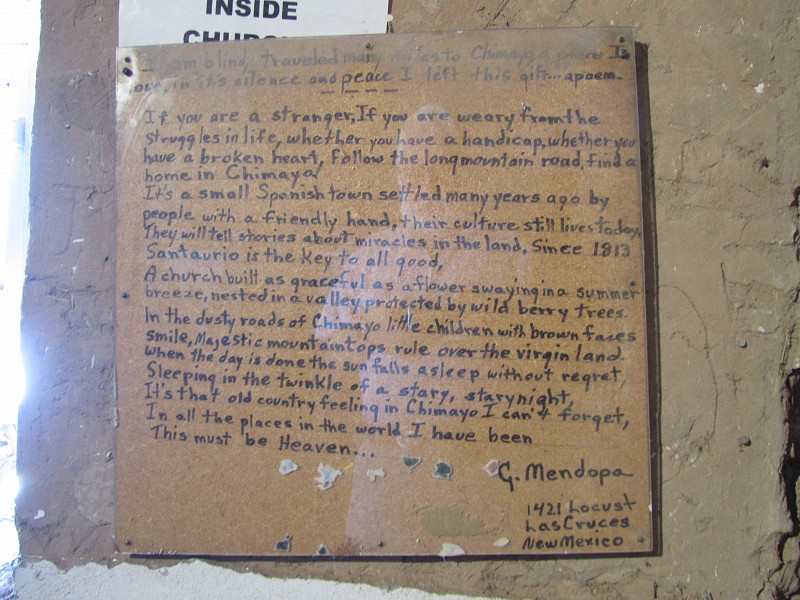 INSIDE
CHURCH
I am blind, traveled many miles to Chimayo, a place I
love, in it's silence and peace I left this gift... a poem.
If you are a stranger, If you are weary from the
struggles in life, whether you have a handicap, whether you
have a broken heart, follow the long mountain road, find a
home in Chimayo.
It's a small Spanish town settled many years ago by
people with a friendly hand, their culture still lives today,
They will tell stories about miracles in the land, Since 1813
Santaurio is the key to all good,
A church built as graceful as a flower swaying in a summer
breeze, nested in a valley protected by wild berry trees.
In the dusty roads of Chimayo little children with brown faces
smile, Majestic mountain tops rule over the virgin land.
When the day is done the sun falls asleep without regret,
Sleeping in the twinkle of a stary, stary night,
It's that old country feeling in Chimayo I can't forget,
In all the places in the world I have been
This must be Heaven...
G. Mendopa
1421 Locust
Las Cruces
New Mexico